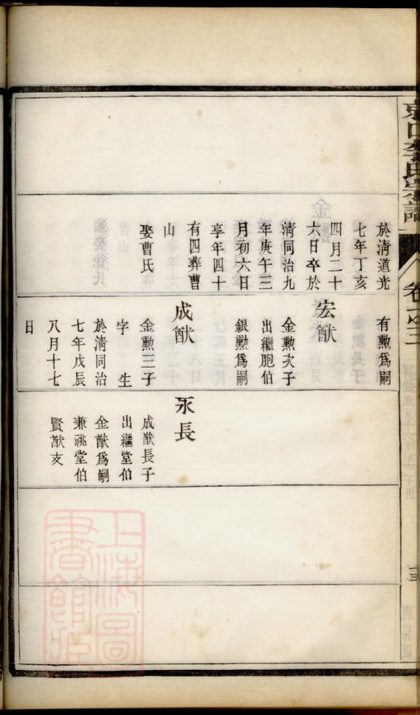 於清道光
七年丁亥
四月二十
六日卒於
清同治九
年庚午三
月初六日
享年四十
有四葬曹
山
娶曹氏
有勳爲嗣
宏猷
金勳次子
出繼胞伯
銀勳爲嗣
成猷
金勳三子
字　生
於清同治
七年戊辰
八月十七
日
永長
成猷長子
出繼堂伯
金猷爲嗣
兼祧堂伯
賢猷支
上海圖
書館藏